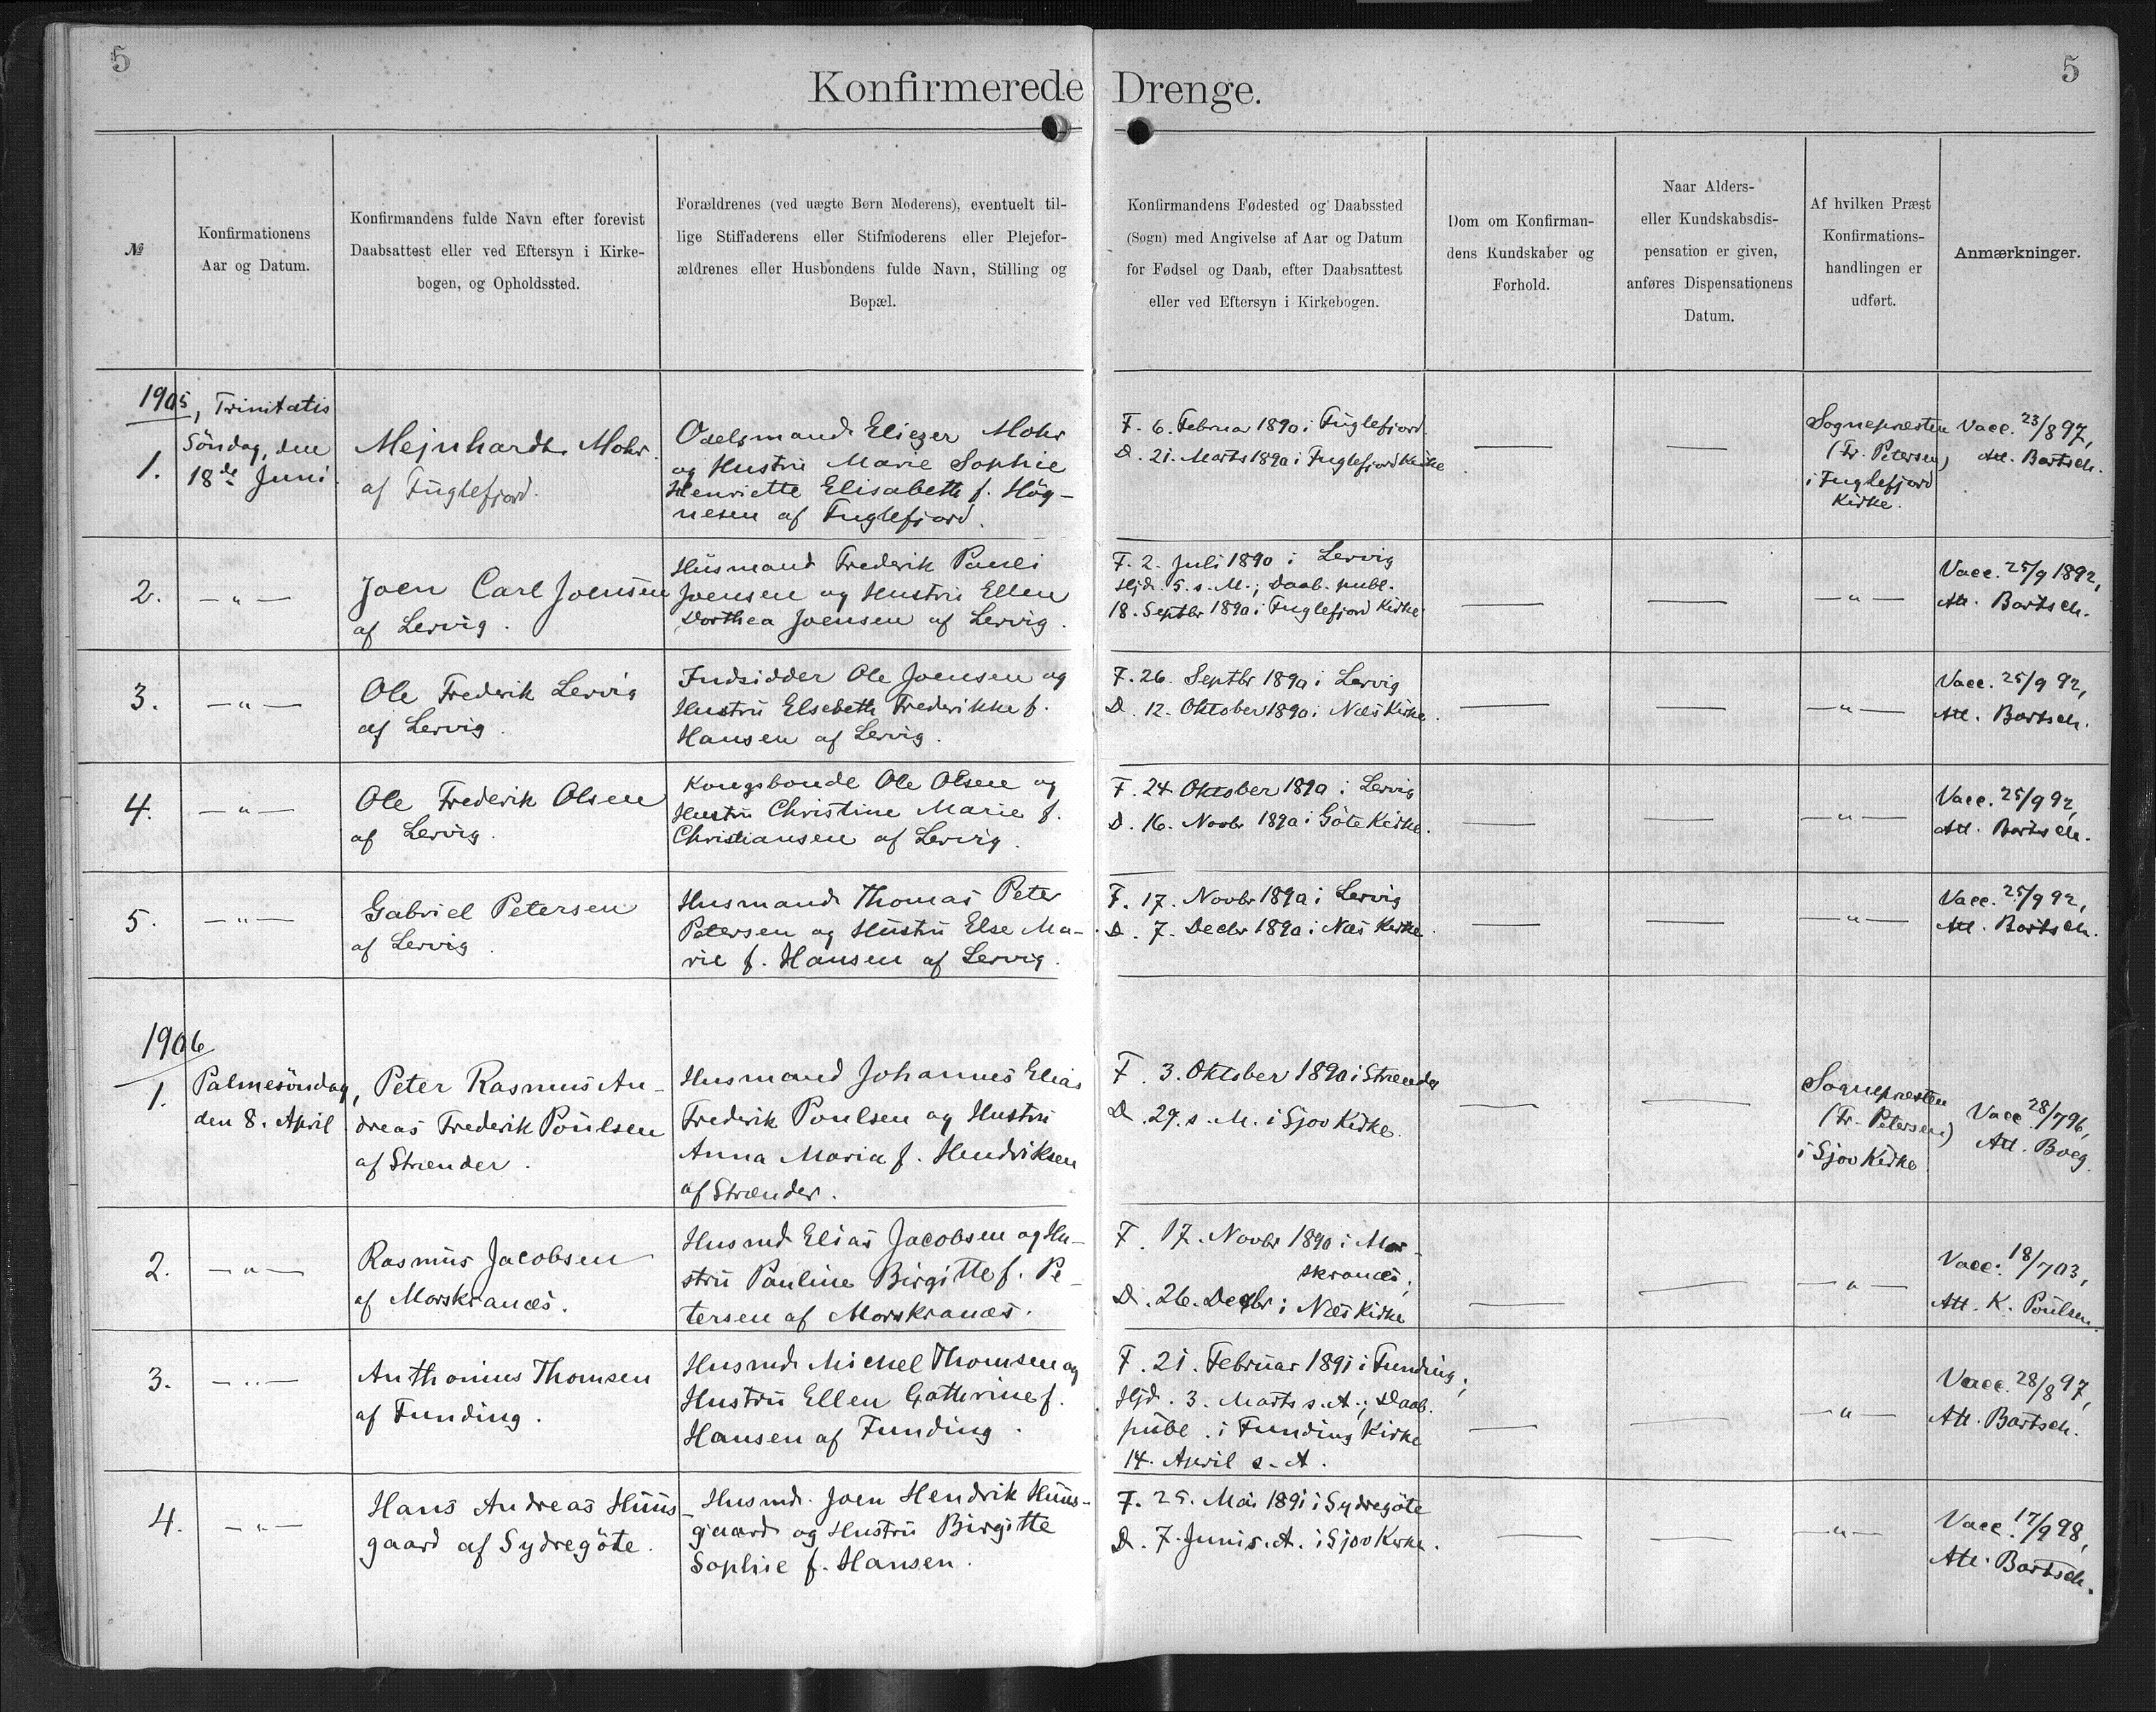 5
5
Konfirmerede Drenge.
№
Konfirmationens
Aar og Datum.
Konfirmandens fulde Navn efter forevist
Daabsattest eller ved Eftersyn i Kirke-
bogen, og Opholdssted.
Forældrenes (ved uægte Børn Moderens), eventuelt til-
lige Stiffaderens eller Stifmoderens eller Plejefor-
ældrenes eller Husbondens fulde Navn, Stilling og
Bopæl.
Konfirmandens Fødested og Daabssted
(Sogn) med Angivelse af Aar og Datum
for Fødsel og Daab, efter Daabsattest
eller ved Eftersyn i Kirkebogen.
Dom om Konfirman-
dens Kundskaber og
Forhold.
Naar Alders-
eller Kundskabsdis-
pensation er given,
anføres Dispensationens
Datum.
Af hvilken Præst
Konfirmations-
handlingen er
udført.
Anmærkninger.
1905, Trinitatis
1.
Söndag, den
18de Juni
Mejnhardt Mohr
af Fuglefjord.
Odelsmand Eliezer Mohr
og Hustru Marie Sophie
Henriette Elisabeth f. Hög-
nesen af Fuglefjord.
F. 6. Februar 1890 i Fuglefjord.
D. 21. Marts 1890 i Fuglefjord Kirke
—
—
Sognepræsten
(Fr. Petersen)
i Fuglefjord
Kirke.
Vacc. 23/8 97,
Att. Bartsch.
2.
—"—
Joen Carl Joensen
af Lervig.
Husmand Frederik Pauli
Joensen og Hustru Ellen
Dorthea Joensen af Lervig.
F. 2. Juli 1890 i Lervig
Hjd. 5. s. M.; Daab. publ.
18. Septbr 1890 i Fuglefjord Kirke
—
—
—"—
Vacc. 25/9 1892,
Att. Bartsch.
3.
—"—
Ole Frederik Lervig
af Lervig.
Indsidder Ole Joensen og
Hustru Elsebeth Frederikke f.
Hansen af Lervig.
F. 26. Septbr 1890 i Lervig
D. 12. Oktober 1890 i Næs Kirke.
—
—
—"—
Vacc. 25/9 92,
Att. Bartsch.
4.
—"—
Ole Frederik Olsen
af Lervig.
Kongsbonde Ole Olsen og
Hustru Christine Marie f.
Christiansen af Lervig.
F. 24 Oktober 1890 i Lervig
D. 16. Novbr 1890 i Göte Kirke.
—
—
—"—
Vacc. 25/9 92,
Att. Bartsch.
5.
—"—
Gabriel Petersen
af Lervig.
Husmand Thomas Peter
Petersen og Hustru Else Ma-
rie f. Hansen af Lervig.
F. 17. Novbr 1890 i Lervig
D. 7. Decbr 1890 i Næs Kirke.
—
—
—"—
Vacc. 25/9 92,
Att. Bartsch.
1906
1.
Palmesöndag,
den 8. April
Peter Rasmus An-
dreas Frederik Poulsen
af Strænder.
Husmand Johannes Elias
Frederik Poulsen og Hustru
Anna Maria f. Hendriksen
af Strænder.
F. 3. Oktober 1890 i Strænder
D. 29. s. M. i Sjov Kirke.
—
—
Sognepræsten
(Fr. Petersen)
i Sjov Kirke
Vacc. 28/7 96,
Att. Boeg.
2.
—"—
Rasmus Jacobsen
af Morskranæs.
Husmd. Elias Jacobsen og Hu-
stru Pauline Birgitte f. Pe-
tersen af Morskranæs.
F. 17. Novbr 1890 i Mor-
skranæs;
D. 26. Decbr i Næs Kirke
—
—
—"—
Vacc. 18/7 03,
Att. K. Poulsen.
3.
—"—
Anthonius Thomsen
af Funding.
Husmd. Michel Thomsen og
Hustru Ellen Catherine f.
Hansen af Funding.
F. 21. Februar 1891 i Funding;
Hjd. 3. Marts s. A.; Daab.
publ. i Funding Kirke
14. April s. A.
—
—
—"—
Vacc. 28/8 97,
Att. Bartsch.
4.
—"—
Hans Andreas Huus-
gaard af Sydregöte.
Husmd. Joen Hendrik Huus-
gaard og Hustru Birgitte
Sophie f. Hansen.
F. 25. Mai 1891 i Sydregöte
D. 7. Juni s. A. i Sjov Kirke.
—
—
—"—
Vacc. 17/9 98,
Att. Bartsch.